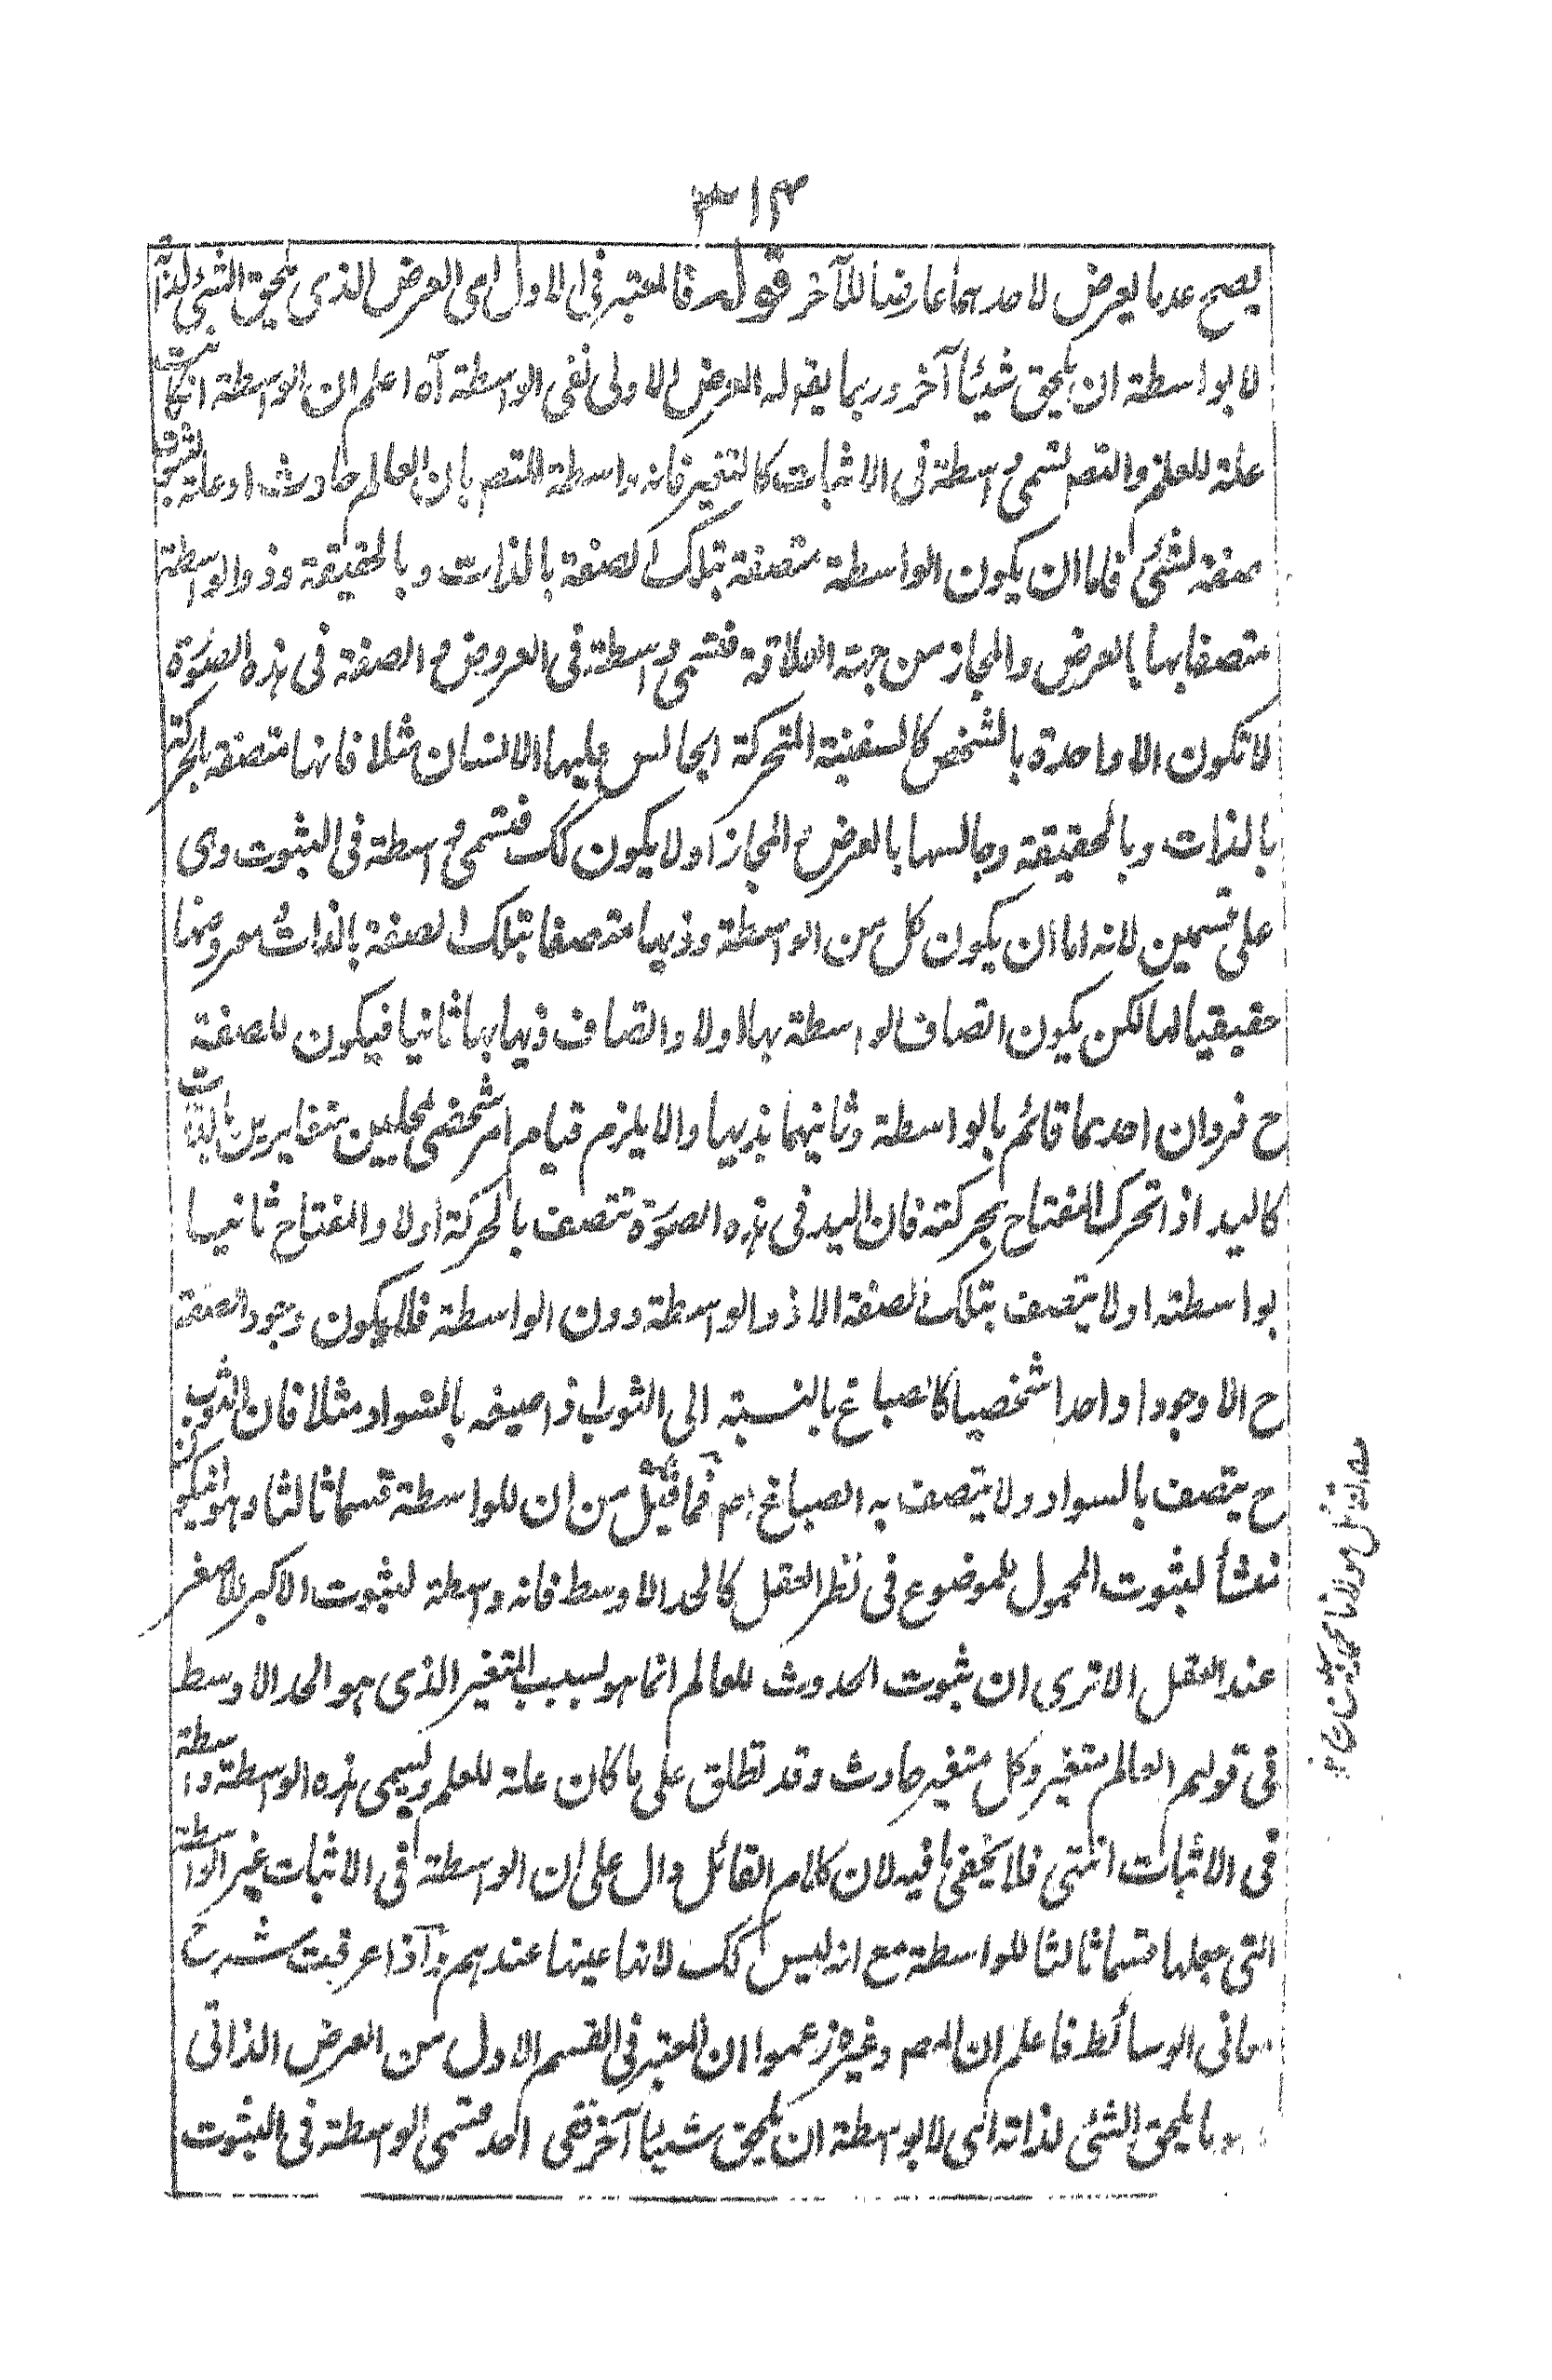 ٣١٤
يصح عد ما يعرض لاحدهما عارضا للآخر قوله فالمعتبر فى الاول اى العرض الذى يلحق الشئ لذاته
لا بواسطة ان يلحق شيئا آخر وربما يقوله العرض الاولى نفى الواسطة آه اعلم ان الواسطة انكانت
علة للعلم والتصم لتسمى واسطة فى الاثبات كالتغير فانه واسطة للتصم بان العالم حادث او علة لثبوت
صفة لشئ فاما ان يكون الواسطة متصفة بتلك الصفة بالذات وبالحقيقة وذو الواسطة
متصفا بها بالعرض والمجاز من جهته العلاقة فتسمى واسطة فى العروض و الصفة فى هذه الصورة
لا تكون الا واحدة بالشخص كالسفينة المتحركة الجالس عليها الانسان مثلا فانها متصفة بالحركة
بالذات وبالحقيقة وجالسها بالعرض والمجاز او لا يكون كك فتسمى واسطة فى الثبوت وهى
على قسمين لانه اما ان يكون كل من الواسطة وذيها متصفا بتلك الصفة بالذات ومعروضها
حقيقيا لها لكن يكون اتصاف الواسطة بها اولا واتصاف ذيها بها ثانيا فيكون للصفة
ح فردان احدهما قائم بالواسطة وثانيهما بذيها والا يلزم قيام امر شخصى بمحلين متغايرين بالذات
كاليد اذا تحرك المفتاح بحركته فان اليد فى هذه الصورة تتصف بالحركة اولا والمفتاح ثانيا
بواسطته او لا يتصف بتلك الصفة الا ذو الواسطة دون الواسطة فلا يكون وجود الصفة
ح الا وجودا واحدا شخصيا كالصباغ بالنسبته الى الثوب اذ اصبغه بالسواد مثلا فان الثوب
ح يتصف بالسواد ولا يتصف به الصباغ اهم فما قيل من ان للواسطة قسما ثالثا وهو ان يكون
منشأ لثبوت المحمول للموضوع فى نظر العقل كالحد الاوسط فانه واسطة لثبوت الاكبر للاصغر
عند العقل الا ترى ان ثبوت الحدوث للعالم انما هو بسبب التغير الذى هو الحد الاوسط
فى قولهم العالم متغير وكل متغير حادث وقد تطلق على ما كان علة للعلم ويسمى هذه الواسطة واسطة
فى الاثبات انتهى فلا يخفى ما فيه لان كلام القائل دال على ان الواسطة فى الاثبات غير الواسطة
التى جعلها قسما ثالثا للواسطة مع انه ليس كك لانها عينها عندهم واذا عرفت شرح
معانى الوسائط فاعلم ان المصم وغيره زعموا ان المعتبر فى القسم الاول من العرض الذاتى
وهو ما يلحق الشئ لذاته اى لا بواسطة ان يلحق شيئا آخر نفى احد قسمى الواسطة فى الثبوت
القائل مولانا محمد مبين